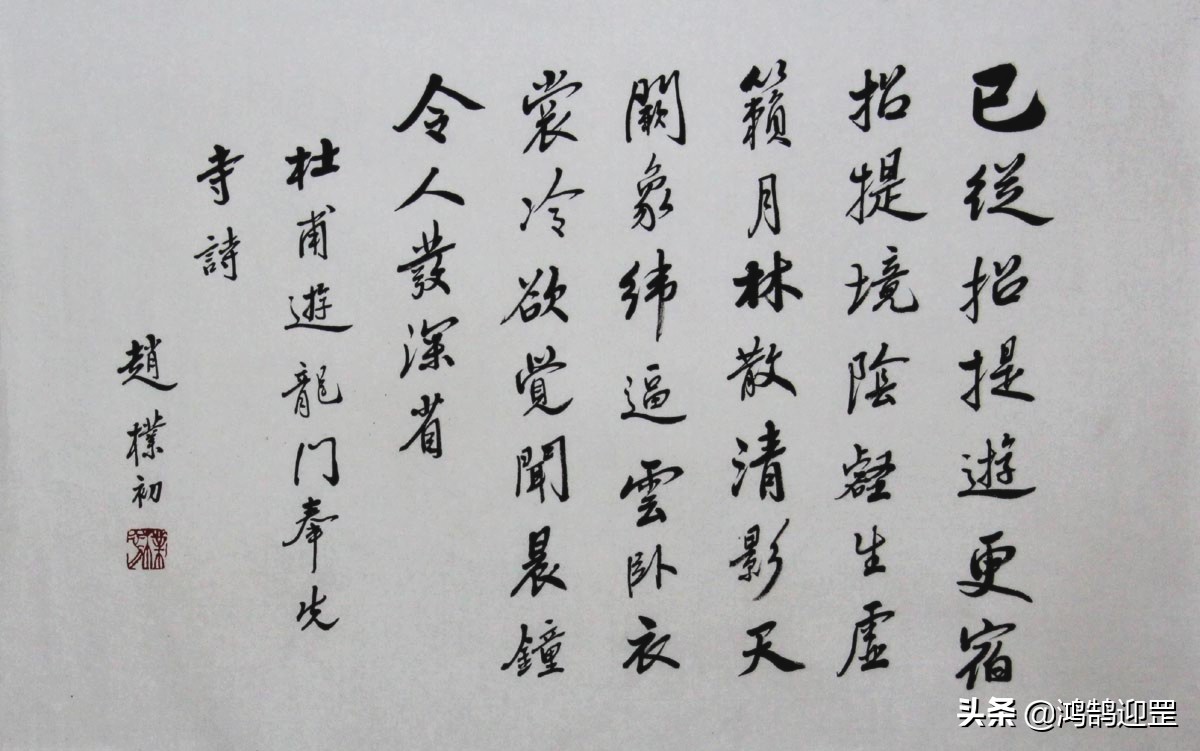 已從招提遊更宿
招提境陰壑生虛
籟月林散清影天
闕象緯逼雲卧衣
裳冷欲覺聞晨鐘
令人發深省
杜甫遊龍门奉先
寺詩
趙樸初
樸初
头条 @鸿鹄迎罡